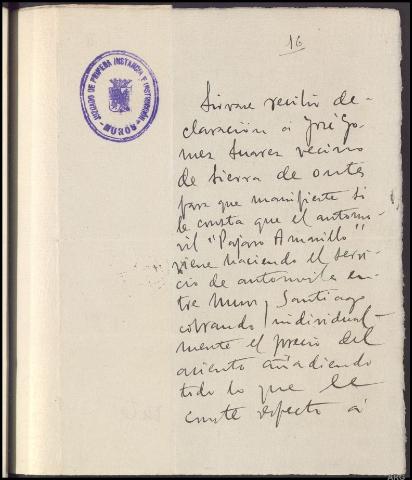 16
JUZGADO DE PRIMERA INSTANCIA E INSTRUCCIÓN
MUROS
Sirvase recibir de-
claración a José Go-
mez Suarez vecino
de Sierra de Outes
para que manifieste si
le consta que el automo-
vil "Pajaro Amarillo"
viene haciendo el servi-
cio de automovil en-
tre Muros y Santiago
cobrando individual-
mente el precio del
asiento añadiendo
todo lo que le
conste respecto á
ARG